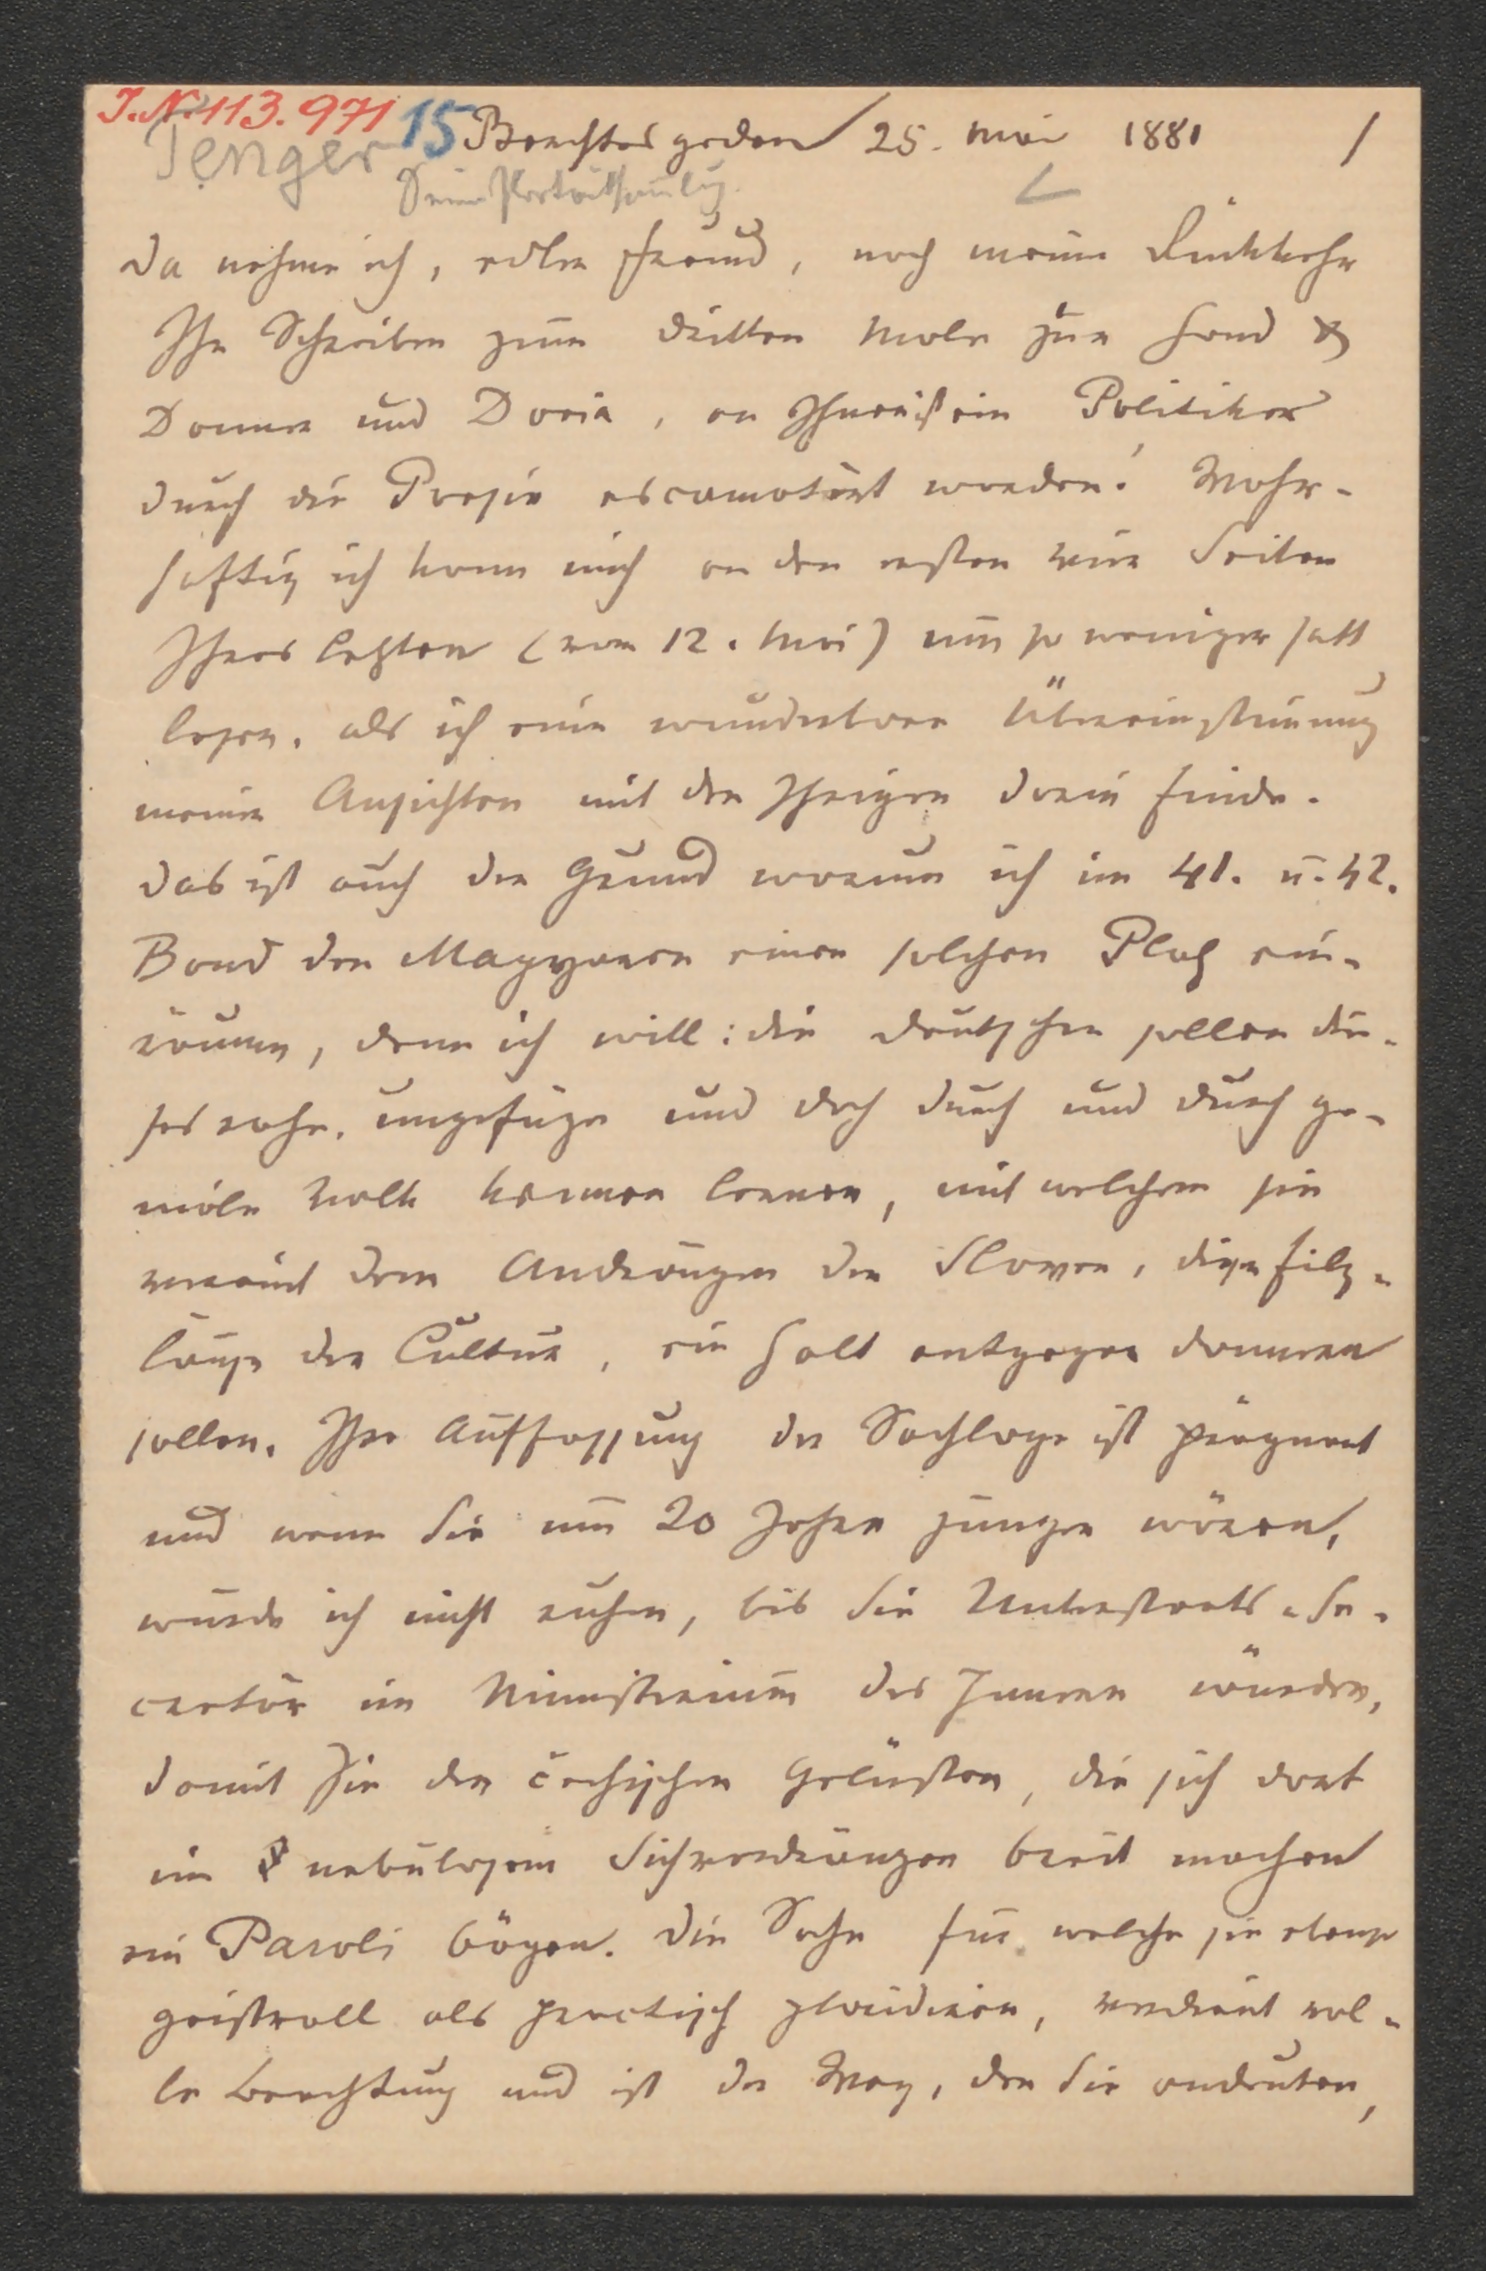 I.N. 113.971
Tenger 15 Berchtesgaden 25. Mai 1881 /
Seine Porträtsamlg.
Da nehme ich, edler Freund, nach meiner Rückkehr
Ihr Schreiben zum dritten Male zur Hand &
Donner und Doria, an Ihnen ist ein Politiker
durch die Poesie escamotirt worden! Wahr-
haftig ich kann mich an den ersten vier Seiten
Ihres letzten (vom 12. Mai) um so weniger satt
lesen, als ich eine wunderbare Übereinstimmung
meiner Ansichten mit den Ihrigen darin finde.
Das ist auch der Grund warum ich im 41. u. 42.
Band den Magyaren einen solchen Platz ein-
räume, denn ich will: die Deutschen sollen die-
ses rohe, ungefüge und doch durch und durch ge-
niale Volk kennen lernen, mit welchem sie
vereint dem Andrängen der Slaven, diese Filz-
läuse der Cultur, ein Halt entgegen donnern
sollen. Ihre Auffassung der Sachlage ist prägnant
und wenn Sie um 20 Jahre jünger wären,
würde ich nicht ruhen, bis Sie Unterstaats-Se-
cretär im Ministerium des Innern würden,
damit Sie den čechischen Gelüsten, die sich dort
in nebulosem Sichvordrängen breit machen
ein Paroli bögen. Die Sache für welche sie ebenso
geistvoll als practisch plaidieren, verdient vol-
le Beachtung und ist der Weg, den Sie andeuten,